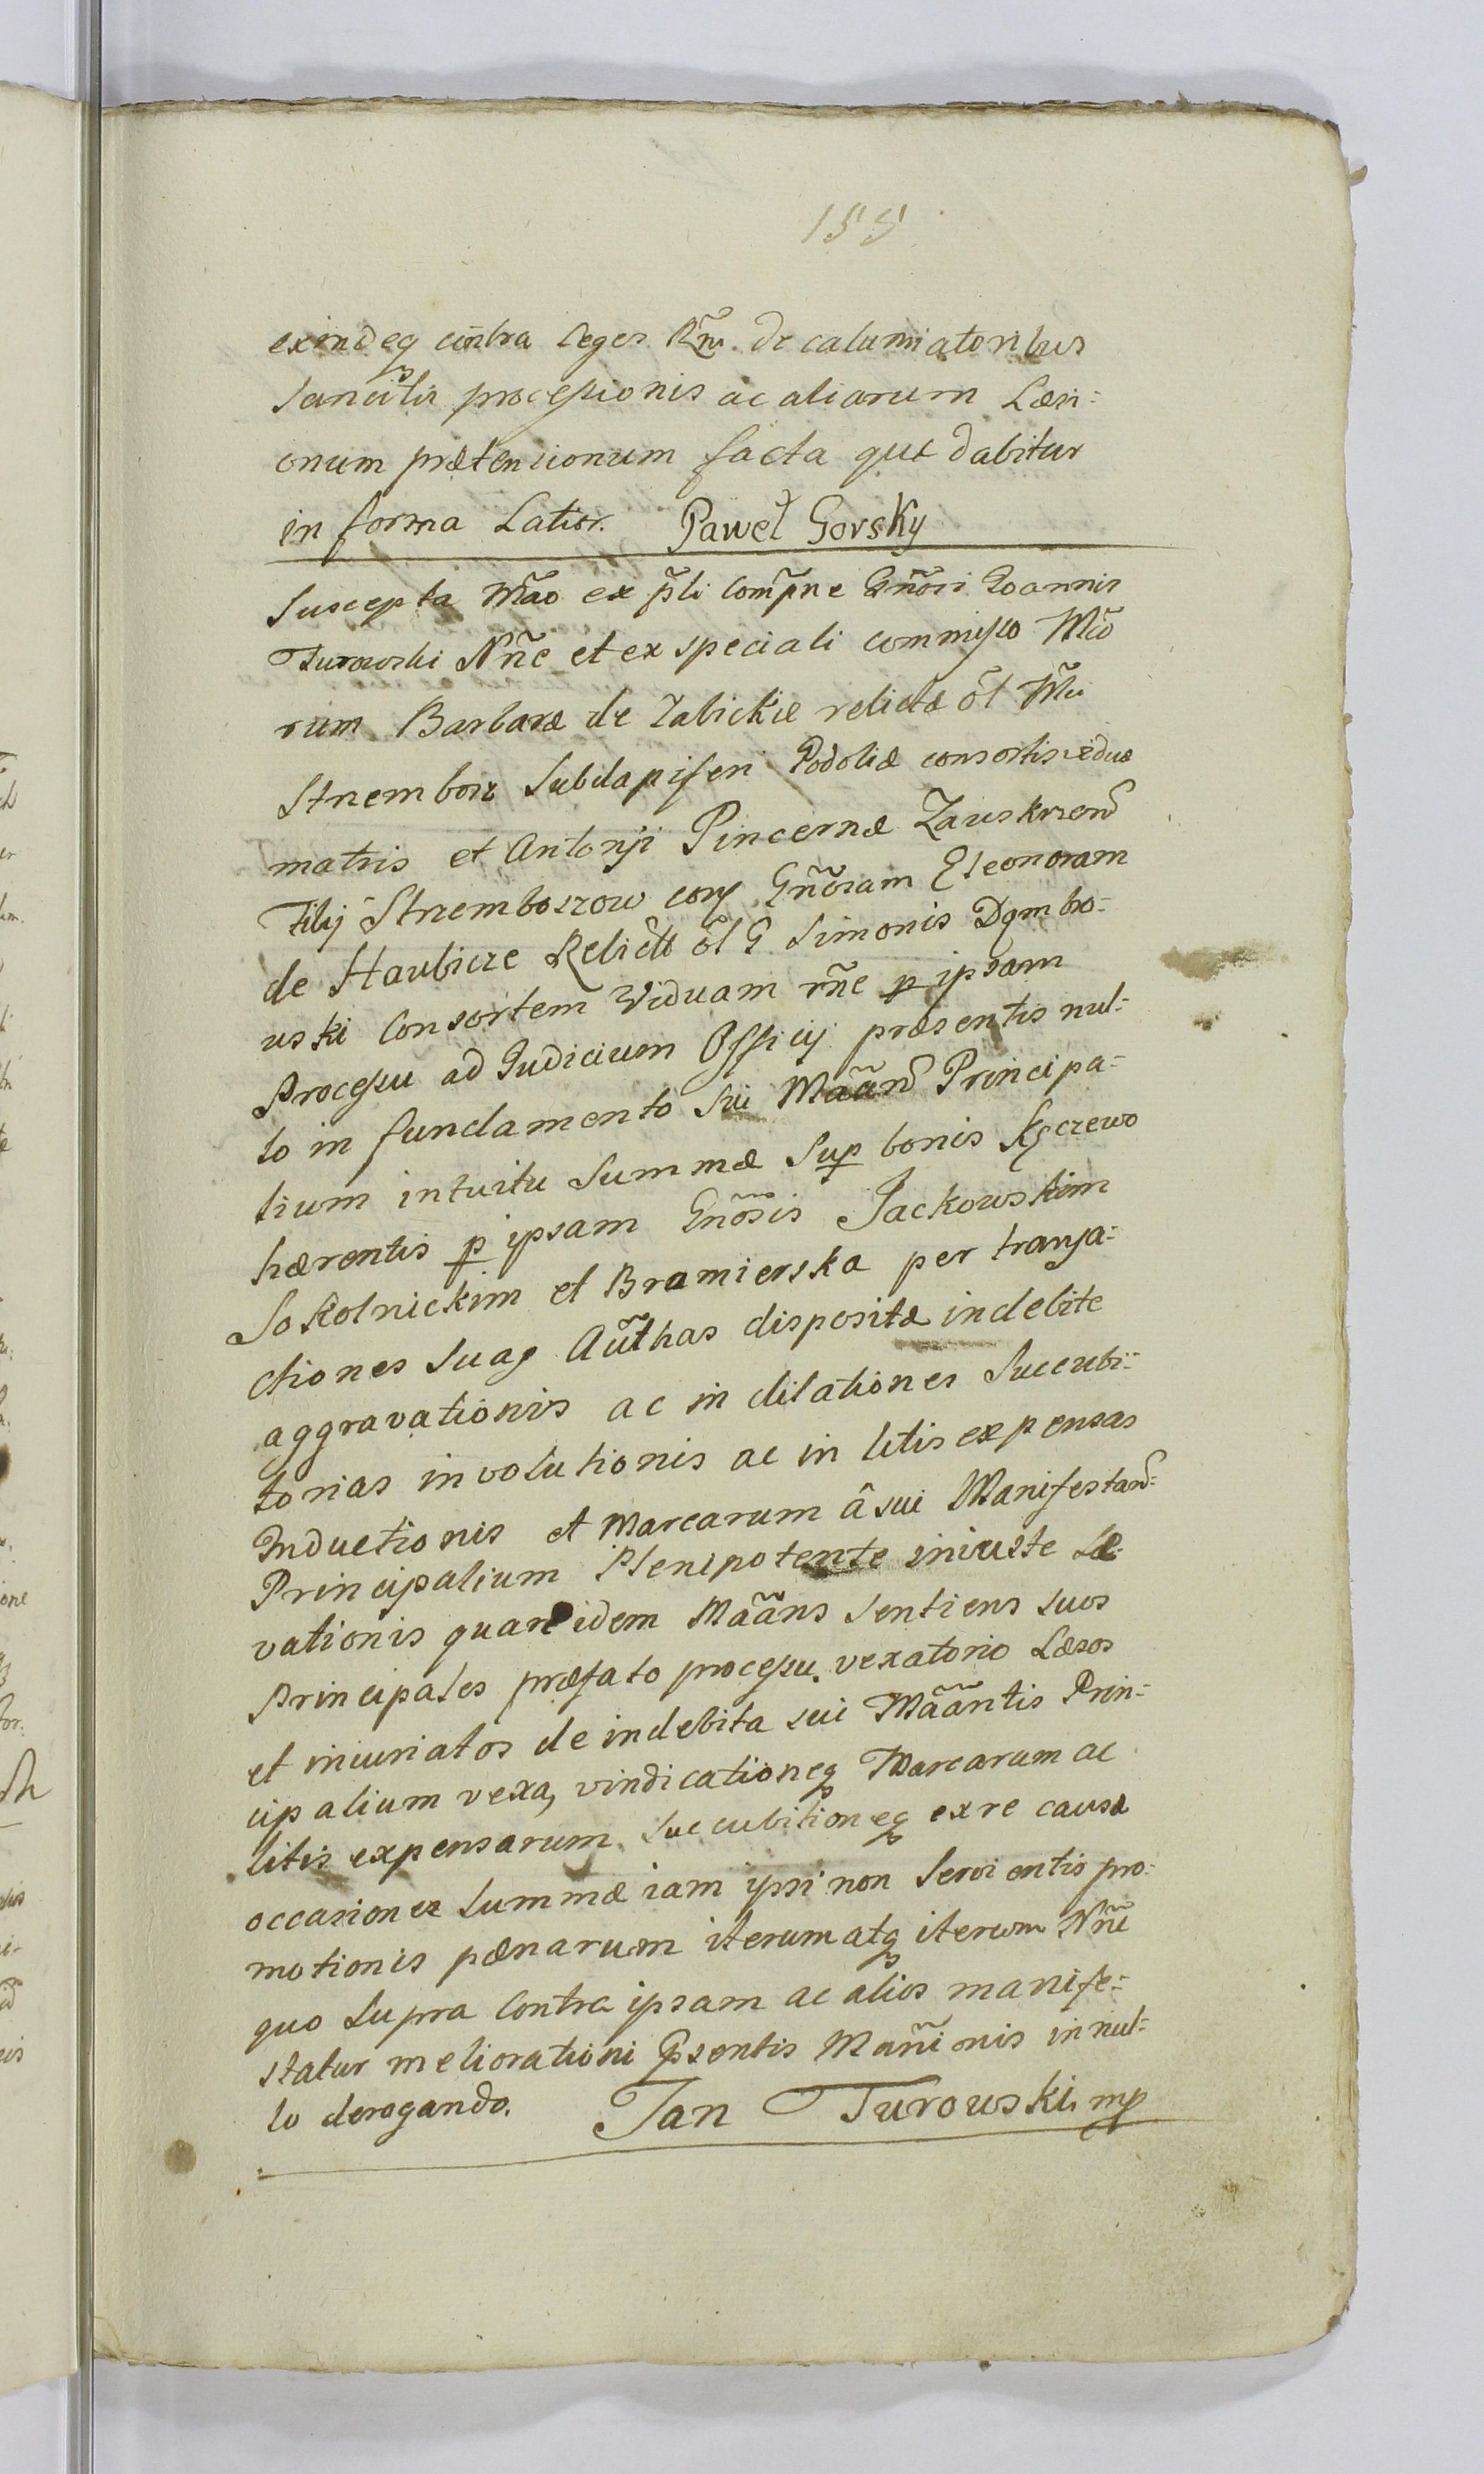 155
exindeq contra leges Rñi. de calumniatoribus
sancitis processionis ac aliarum Læsi:
onum prætensionum facta quæ dabitur
in forma Latior. Paweł Gorsky
Suscepta Mão ex p̃li Com̃pne Gñosi Joannis
Turowski Nñe et ex speciali commisso Mcõ
rum Barbaræ de Zabickie relictæ õl Mci
Strembosz Subdapiferi Podoliæ consortis viduæ
matris et Antonji Pincernæ Zawskrzen͂
Filij Stremboszow conŧ Gñosam Eleonoram
de Haubicze Relictã õl G Simonis Dąmbro:
wski Consortem Viduam rñe p ipsam
Processu ad Judicium Officij præsentis nul:
lo in fundamento sui Mãan͂ Principa:
lium intuitu Summæ Sup bonis Kęczewo
hærentis p ipsam Gñosis Jackowskim
Sokolnickim et Bramierska per transa:
ctiones suas Aũthas dispositæ indebite
aggravationis ac in dilationes Succubi:
torias involutionis ac in litis expensas
Inductionis et Marcarum â sui Manifestan͂:
Principalium Plenipotente iniuste Le:
vationis quare idem Mãans sentiens suos
Principales præfato processu vexatorio Læsos
et iniuriatos de indebita sui Mãantis Prin:
cipalium vexa, vindicationeq Marcarum ac
litis expensarum Succubitioneq ex re causæ
occasione Summæ iam ipsi non Servientis pro:
motionis pænarum iterum atq iterum Nñe
quo Supra Contra ipsam ac alios manife:
statur meliorationi Psentis Mañionis in nul:
lo derogando. Jan Turowski mp